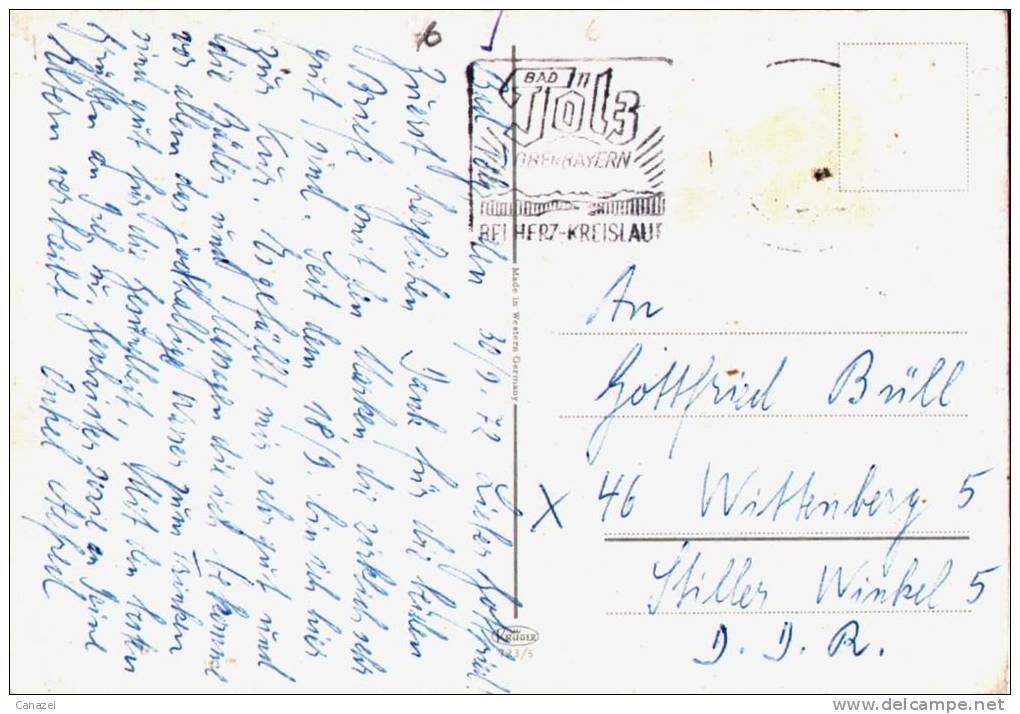 Bad Tölz, den 30/9. 72 Lieber Gottfried
Zuerst herzlichen Dank für die beiden
Briefe mit den Marken die wirklich sehr
gut sind. Seit dem 18/9. bin ich hier
zur Kur. Es gefällt mir sehr gut und
die Bäder und Massagen die ich bekomme
vor allem das jodhaltige Wasser zum Trinken
sind gut für die Gesundheit. Mit den besten
Grüßen an Dich, Geschwister sowie an Deine
Eltern verbleibt Onkel Alfred
6
6
BAD
Tölz
OBERBAYERN
BEI HERZ-KREISLAUF
Made in Western Germany
KRÜGER
723/5
An
Gottfried Büll
X 46 Wittenberg 5
Stiller Winkel 5
D. D. R.
Canazei
delcampe.net